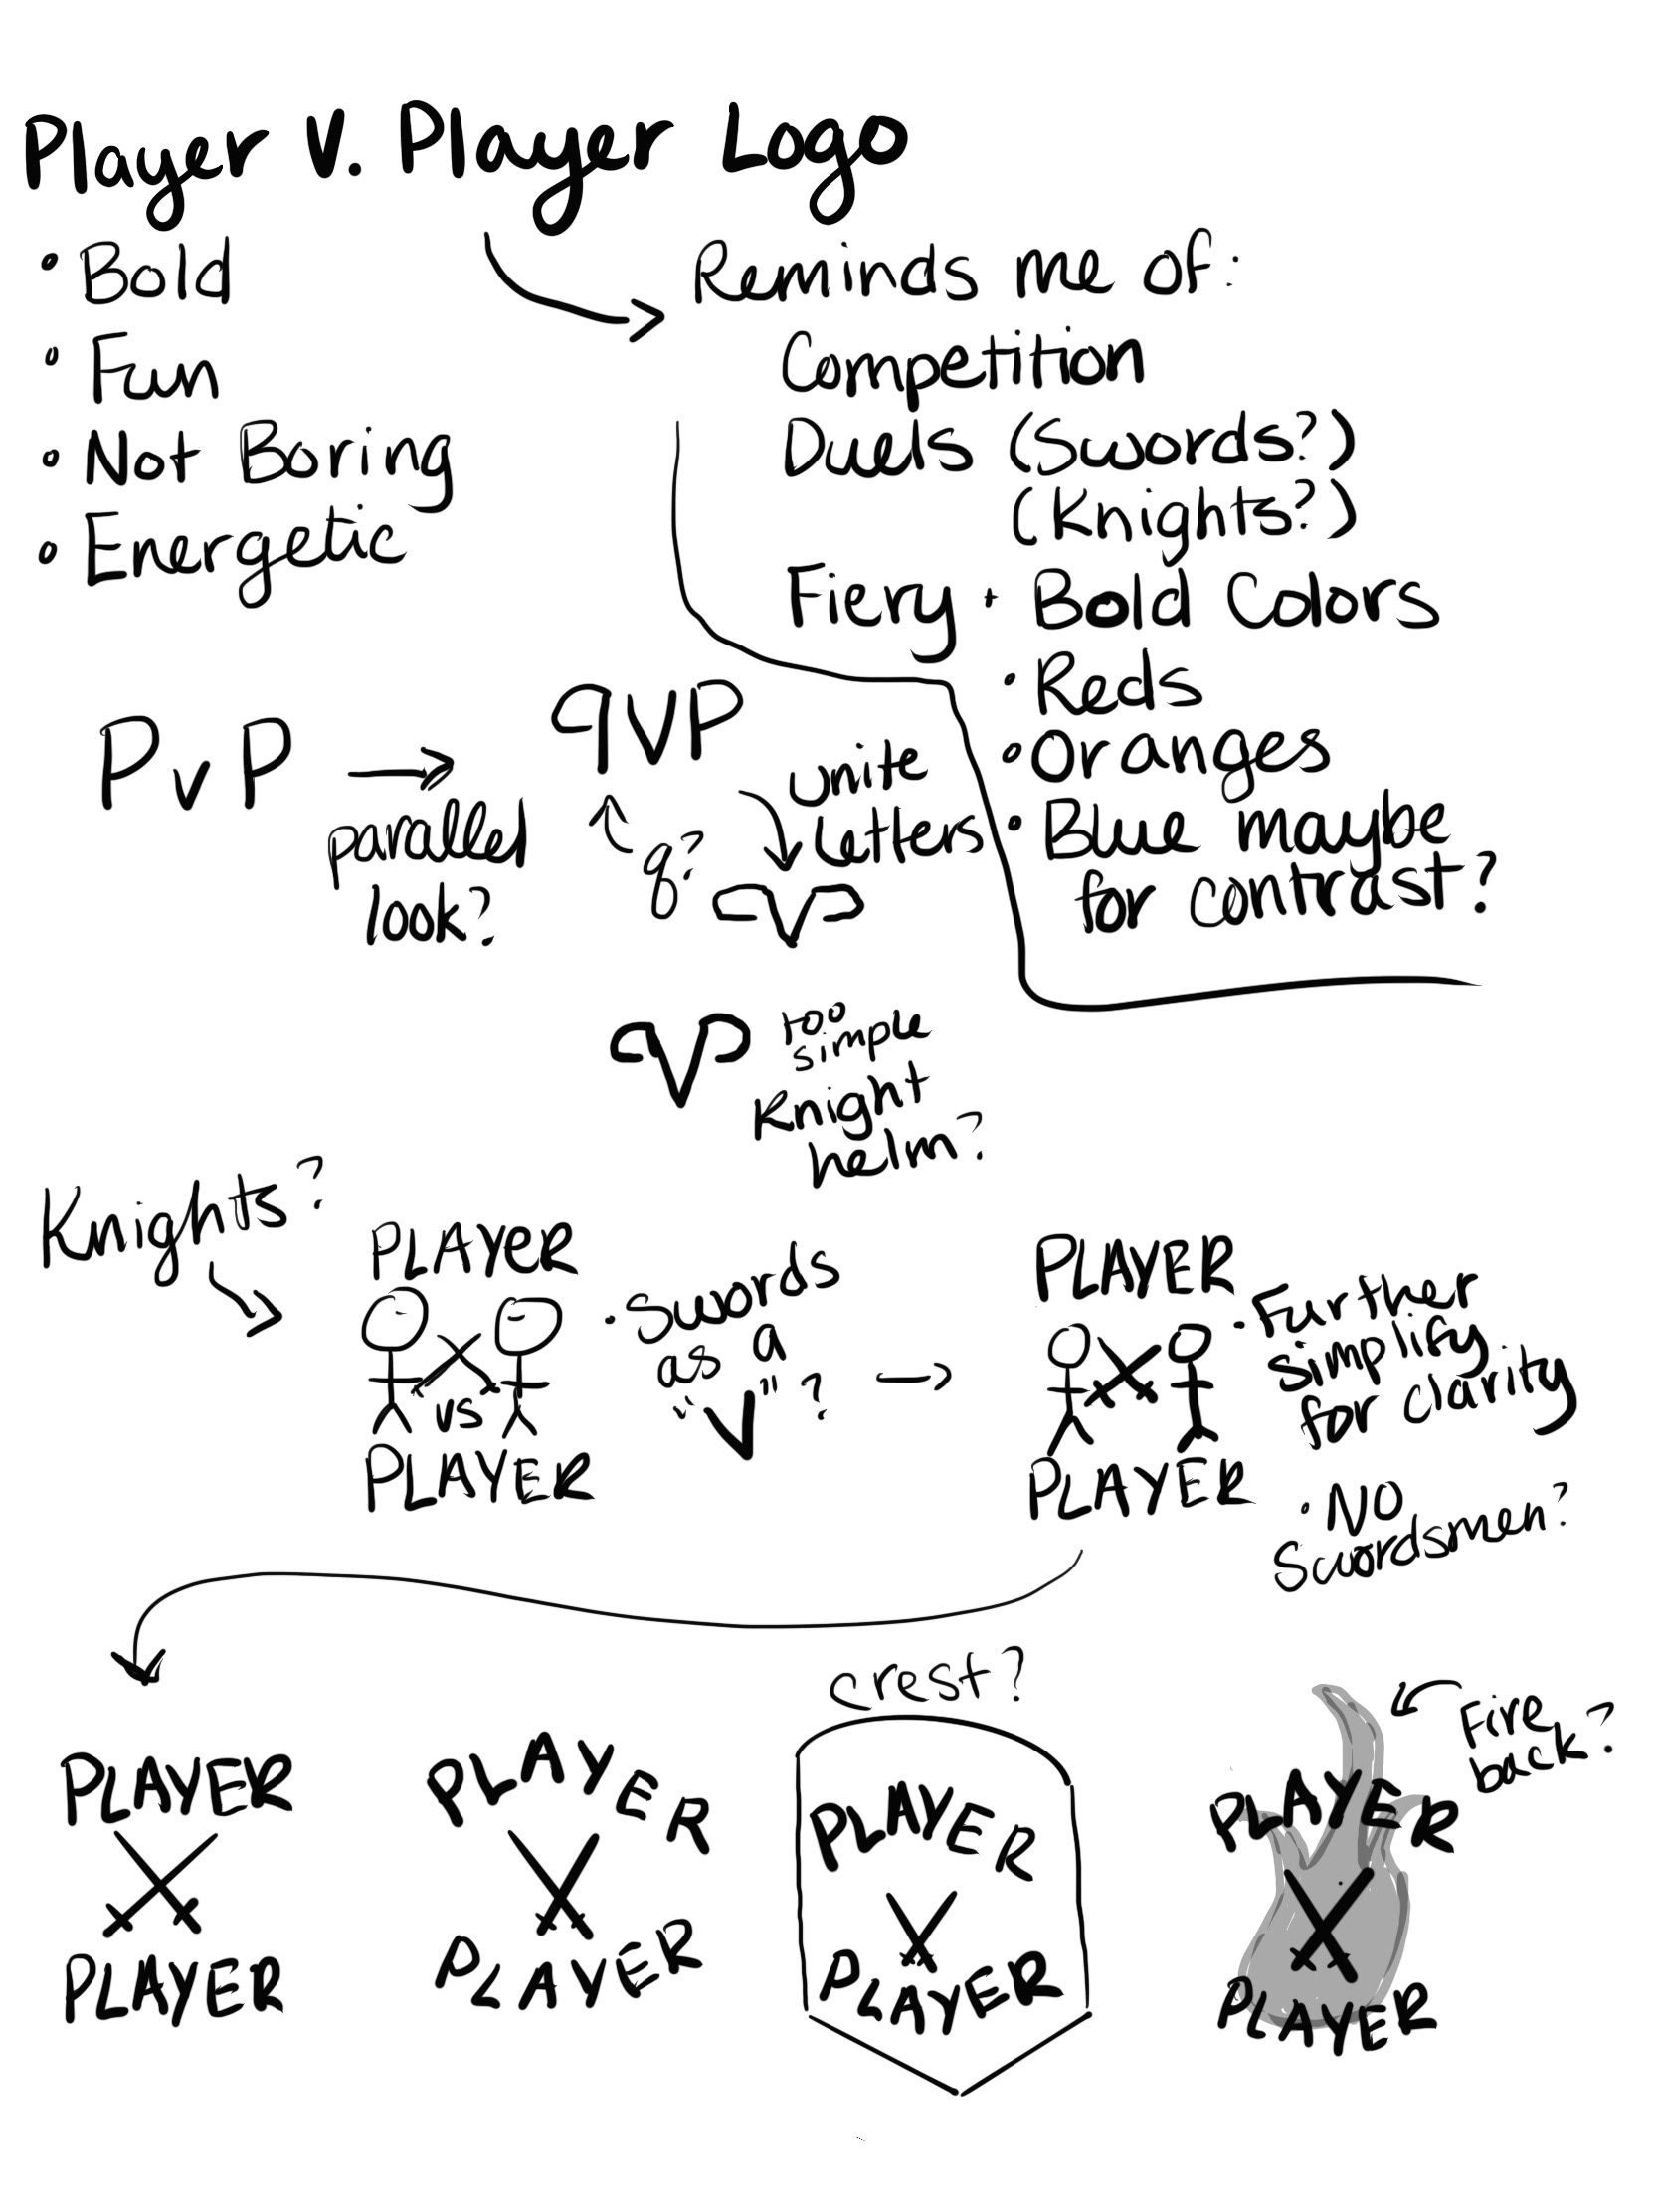 Player V. Player Logo
• Bold
• Fun
• Not Boring
• Energetic
Reminds me of:
Competition
Duels (Swords?)
(Knights?)
Fiery + Bold Colors
• Reds
• Oranges
• Blue maybe
for contrast?
PvP
parallel
look?
qVP
q?
unite
letters
too
simple
Knight
helm?
Knights?
PLAYer
vs
PLAYER
• Swords
as a
"V"?
PLAYER
PLAYER
• Further
simplify
for clarity
• NO
Swordsmen?
PLAYER
PLAYER
PLAYER
PLAYER
crest?
PLAYER
PLAYER
Fire
back?
PLAYER
PLAYER